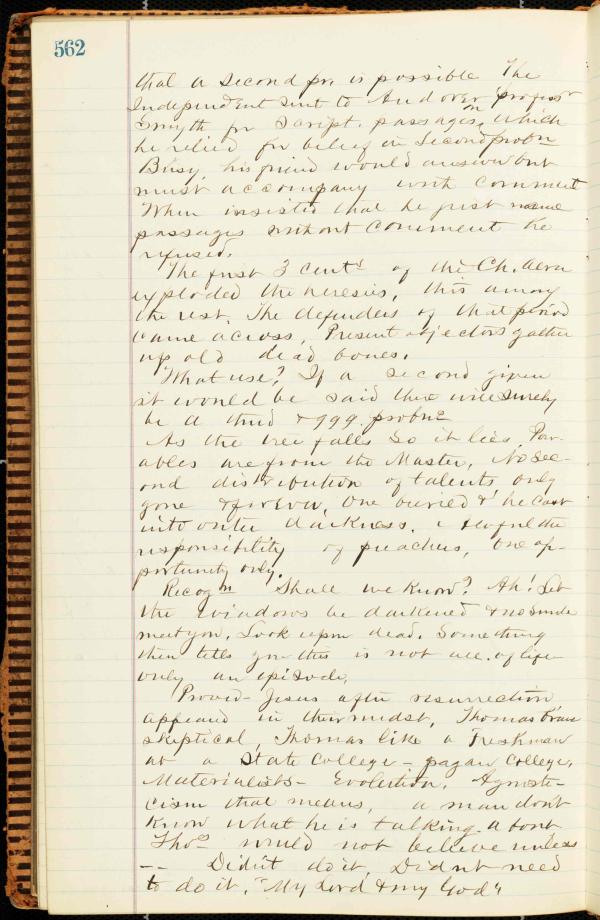 562
that a second pr. is possible The
Independent sent to Andover profess'r
Smyth for Script. passages, on which
he relied for belief in Second prob'n
Busy, his friend would answer but
must accompany with comment
When insisted that he just name
passages without comment he
refused.
The first 3 cent's of the Ch. aera
exploded the heresies, this among
the rest. The defenders of that period
came across. Present objectors gather
up old dead bones.
What use? If a second given
it would be said there will surely
be a third & 999. prob'ns
As the tree falls so it lies. Par-
ables are from the Master. No sec-
ond distribution of talents only
gone & forever. One buried & he cast
into outer darkness. 
responsibility of preachers, one op-
portunity only.
Recog'n Shall we know? Ah! Let
the windows be darkened & no smile
meet you. Look upon dead. Something
then tells you this is not all. of life
only an episode.
Proved - Jesus after resurrection
appeared in their midst. Thomas
skeptical, Thomas like a Freshman
at a State College - pagan College,
Materialists - Evolution. Agnosti-
cism that means, a man don't
know what he is talking about
Tho's would not believe unless
-- Didn't do it, Didn't need
to do it. "My Lord & my God"